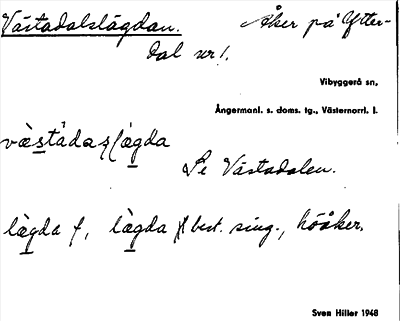 Västadalslägdan. Åker på Ytter-
dal nr 1.
Vibyggerå sn,
Ångermanl. s. doms. tg., Västernorrl. l.
Se Västadalen.
lägda f, lägda best. sing., hööker.
Sven Hiller 1948